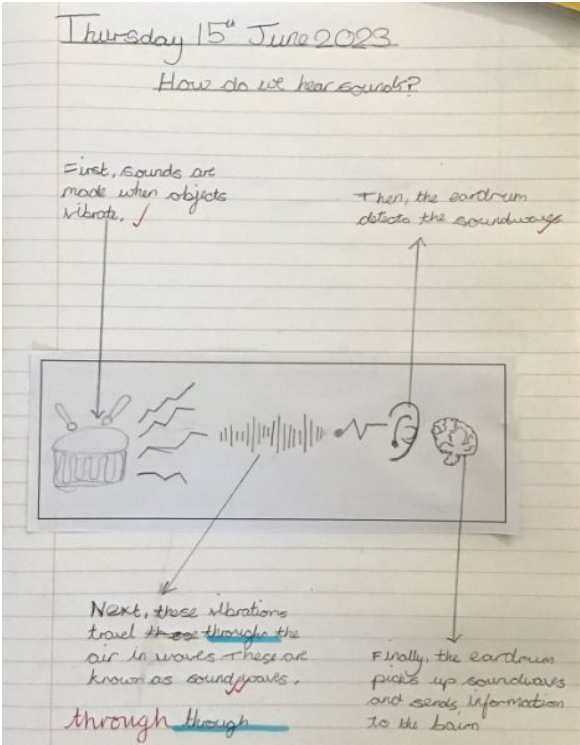 Thursday 15th June 2023
How do we hear sounds?
First, sounds are
made when objects
vibrate.
Then, the eardrum
detects the soundwaves
Next, these vibrations
travel through the
air in waves These are
known as sound waves.
through through
Finally, the eardrum
picks up soundwaves
and sends information
to the bairn